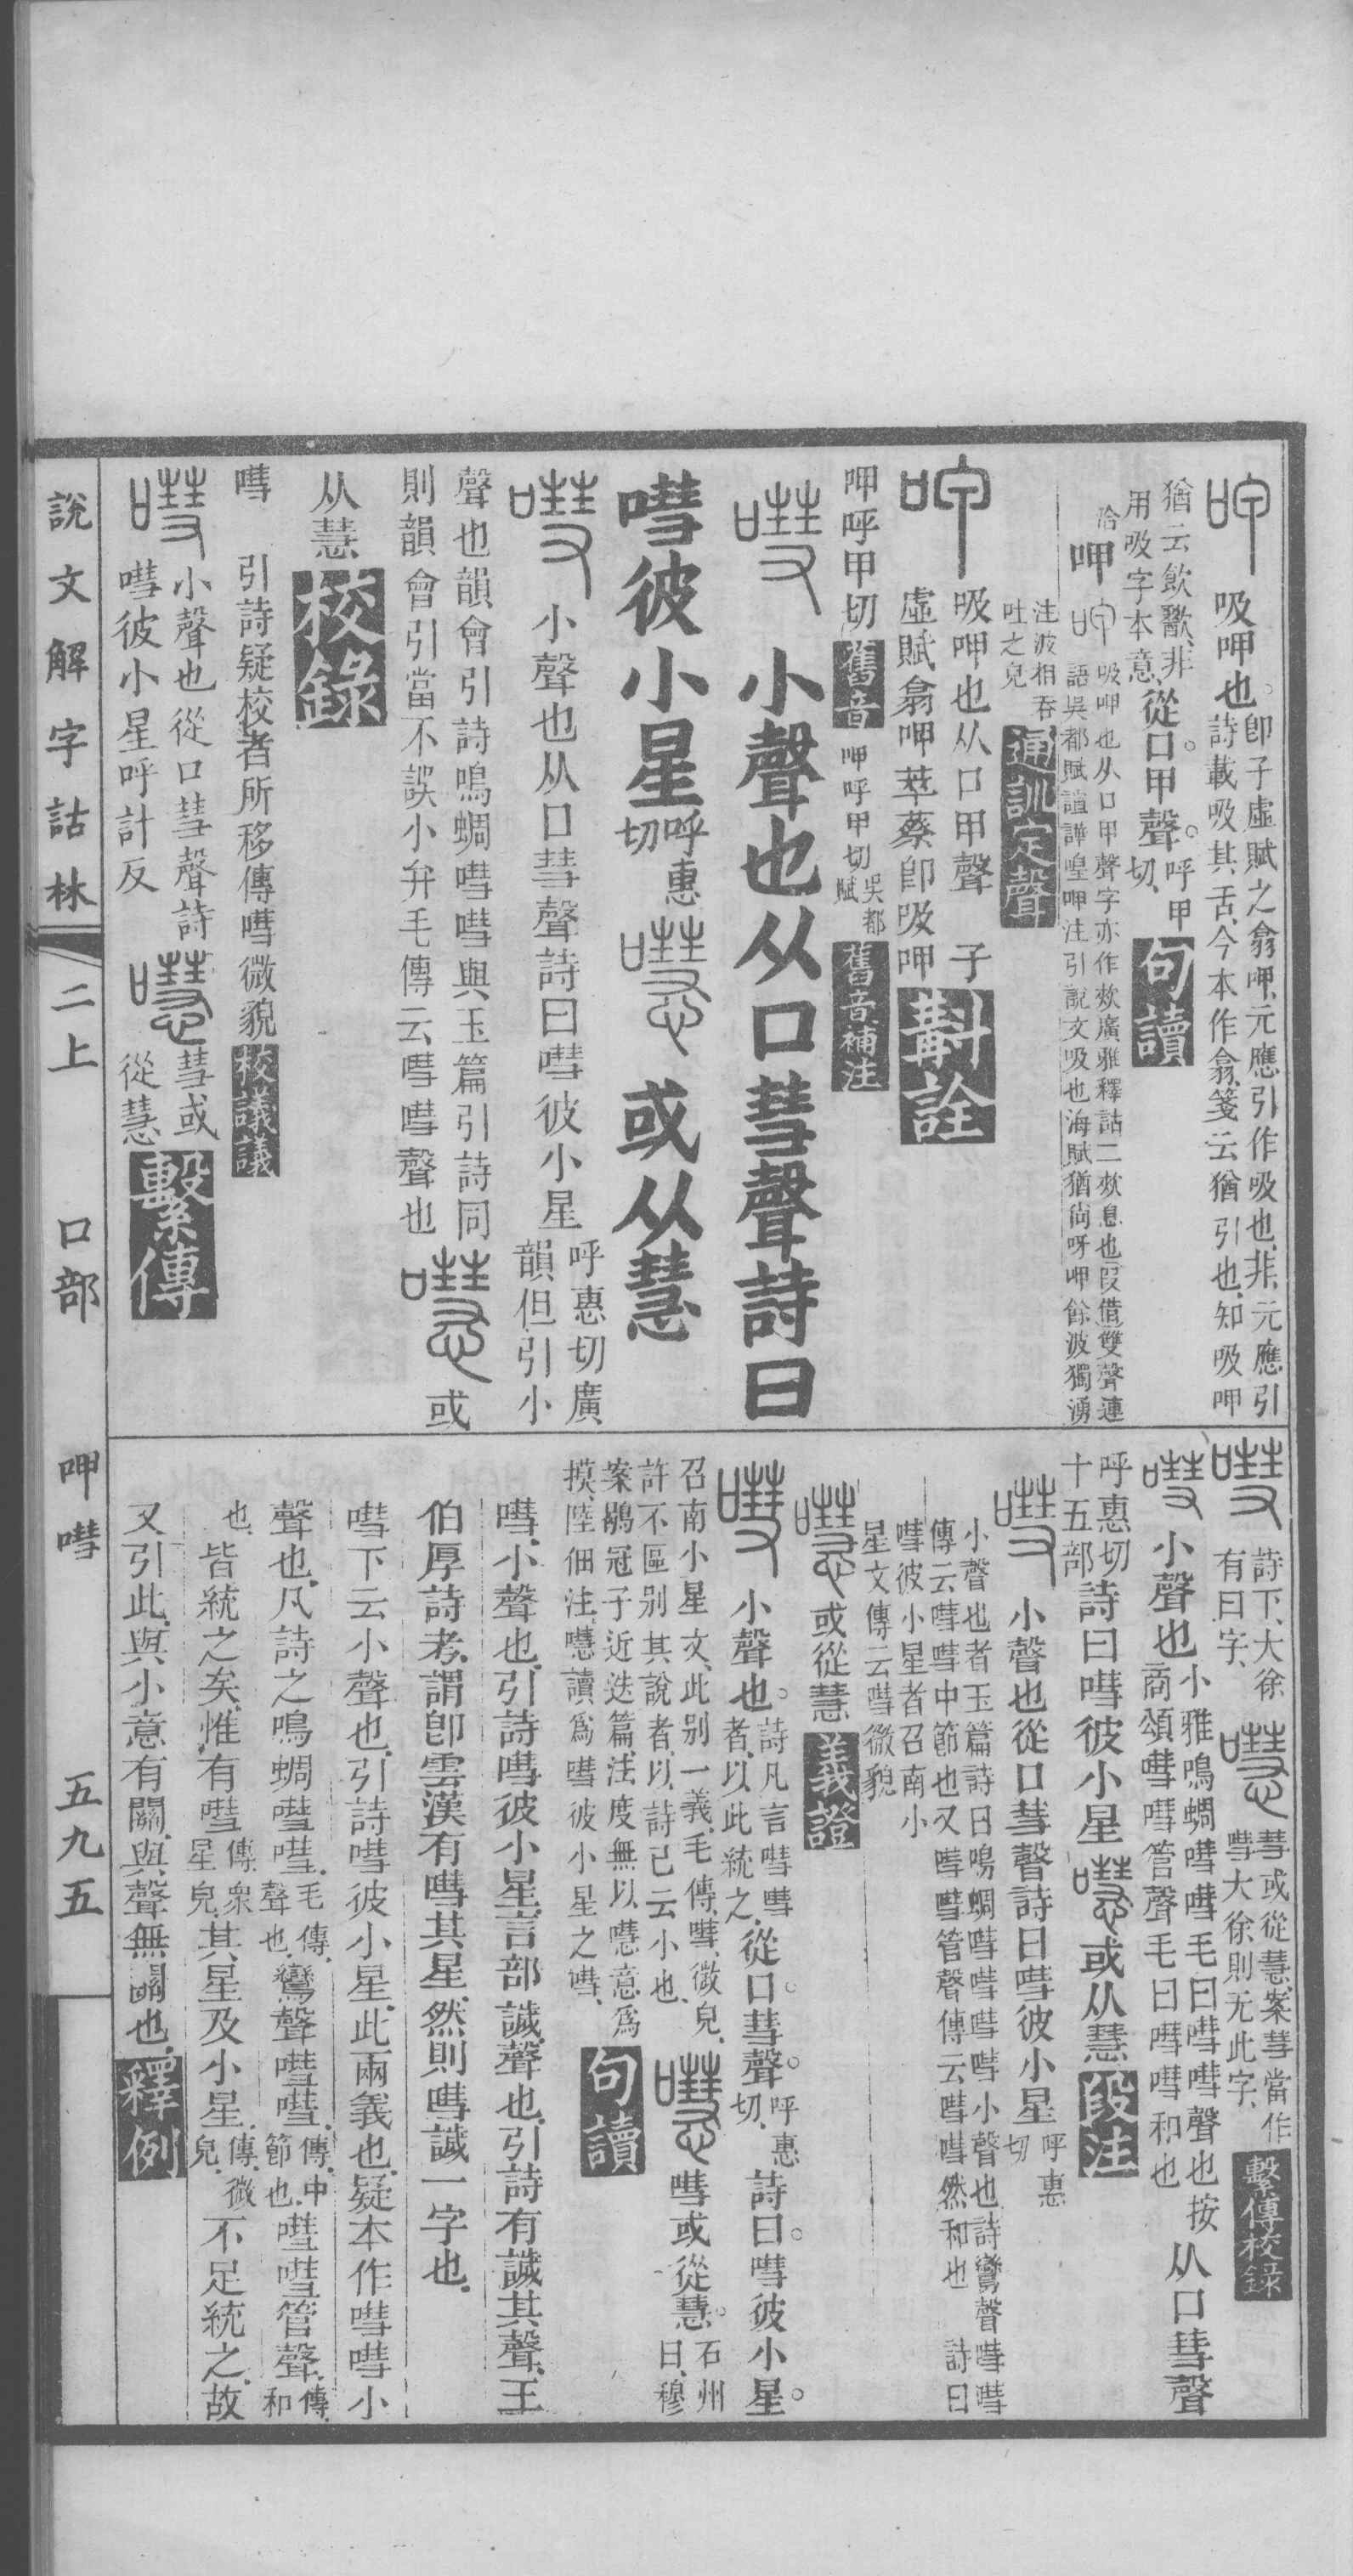 吸呷也。卽子虛賦之翕呷、元應引作吸也、非、元應引
詩載吸其舌、今本作翕、箋云猶引也、知吸呷
猶云飲歠、非
用吸字本意、從口。甲聲。呼甲切、句讀
洽呷
吸呷也从口甲聲字亦作欱廣雅釋詁二欱息也叚借雙聲連
語吳都賦諠譁喤呷注引說文吸也海賦猶尙呀呷餘波獨湧
注波相吞
吐之皃通訓定聲
吸呷也从口甲聲 子
虛賦翕呷萃蔡卽吸呷斠詮
呷呼甲切舊音 呷呼甲切吳都賦舊音補注
小聲也从口彗聲詩曰
嘒彼小星呼惠切 或从慧
小聲也从口彗聲詩曰嘒彼小星呼惠切廣
韻但引小
聲也韻會引詩鳴蜩嘒嘒與玉篇引詩同
則韻會引當不誤小弁毛傳云嘒嘒聲也 或
从慧校錄
嘒 引詩疑校者所移傳嘒微貌校議議
小聲也從口彗聲詩
嘒彼小星呼計反 彗或
從慧繫傳
說文解字詁林 二上 口部 呷嘒 五九五
詩下、大徐
有曰字、 彗或從慧、案彗當作
嘒大徐則无此字、繫傳校錄
小聲也小雅鳴蜩嘒嘒毛曰嘒嘒聲也按
商頌嘒嘒管聲毛曰嘒嘒和也从口彗聲
呼惠切
十五部詩曰嘒彼小星 或从慧段注
小聲也從口彗聲詩曰嘒彼小星呼惠切
小聲也者玉篇詩曰鳴蜩嘒嘒嘒小聲也詩鸞聲嘒嘒
傳云嘒嘒中節也又嘒嘒管聲傳云嘒嘒然和也 詩曰
嘒彼小星者召南小
星文傳云嘒微貌
或從慧義證
小聲也。詩凡言嘒嘒
者、以此統之、從口。彗聲。呼惠切、詩曰。嘒彼小星。
召南小星文、此別一義、毛傳、嘒、微皃、
許不區別其說者、以詩已云小也、 嘒或從慧。石州
曰、穆
案鶡冠子近迭篇、法度無以嚖意爲
摸、陸佃注、嚖讀爲嘒彼小星之嘒、句讀
嘒、小聲也、引詩嘒彼小星、言部諴、聲也、引詩有諴其聲、王
伯厚詩考、謂卽雲漢有嘒其星、然則嘒諴一字也、
嘒下云小聲也、引詩嘒彼小星、此兩義也、疑本作嘒嘒小
聲也、凡詩之鳴蜩嘒嘒、毛傳、聲也、鸞聲嘒嘒、傳、中節也、嘒嘒管聲、傳、和
也、皆統之矣、惟有嘒傳衆星皃、其星及小星、傳、微皃、不足統之、故
又引此、與小意有關、與聲無關也、釋例